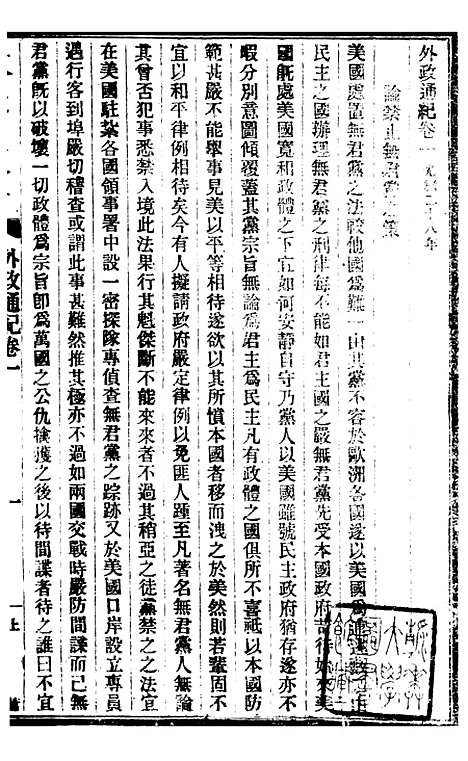 外政通紀卷一 光緒二十八年
論禁止無君黨之策
美國處置無君黨之法較他國爲難一由其黨不容於歐洲各國遂以美國爲
民主之國辦理無君黨之刑律每不能如君主之國之嚴無君黨先受本國政府苛待如來美
國旣處美國寬和政體之下宜如何安靜自守乃黨人以美國雖號民主政府猶存亦不
暇分別意圖傾覆蓋其黨宗旨無論爲君主爲民主凡有政體之國俱所不喜祗以本國防
範甚嚴不能舉事見美以平等相待遂欲以其所憤本國者移而洩之於美然則若輩固不
宜以和平律例相待矣今有人擬請政府嚴定律例以免匪人踵至凡著名無君黨人無論
其曾否犯事悉禁入境此法果行其魁傑斷不能來來者不過其稍亞之徒黨禁之之法宜
在美國駐紮各國領事署中設一密探隊專偵查無君黨之踪跡又於美國口岸設立專員
遇行客到埠嚴切稽查或謂此事甚難然推其極亦不過如兩國交戰時嚴防間諜而已無
君黨旣以破壞一切政體爲宗旨卽爲萬國之公仇擒獲之後以待間諜者待之誰曰不宜
外政通記卷一
一
上